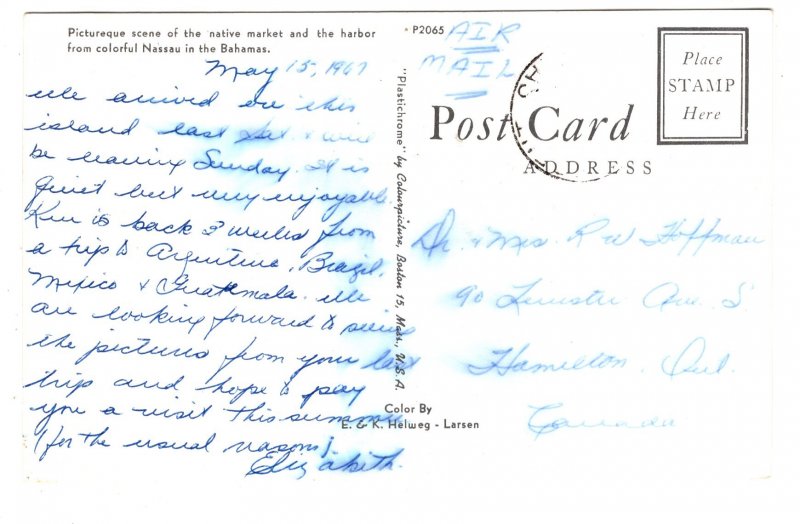 Picturesque scene of the native market and the harbor
from colorful Nassau in the Bahamas.
May 15, 1967
We arrived on this
island last Sat. & will
be leaving Sunday. It is
quiet but very enjoyable.
Ken is back 2 weeks from
a trip to Argentina, Brazil,
Mexico & Guatemala. We
are looking forward to seeing
the pictures from your last
trip and hope to pay
you a visit this summer
(for the usual reasons).
Elizabeth.
"Plastichrome" by Colourpicture, Boston 15, Mass., U.S.A.
Color By
E. & K. Helweg - Larsen
P2065
AIR
MAIL
Post Card
ADDRESS
Place
STAMP
Here
Dr. & Mrs. R W Hoffman
90 Ave. S
Hamilton, Ont.
Canada